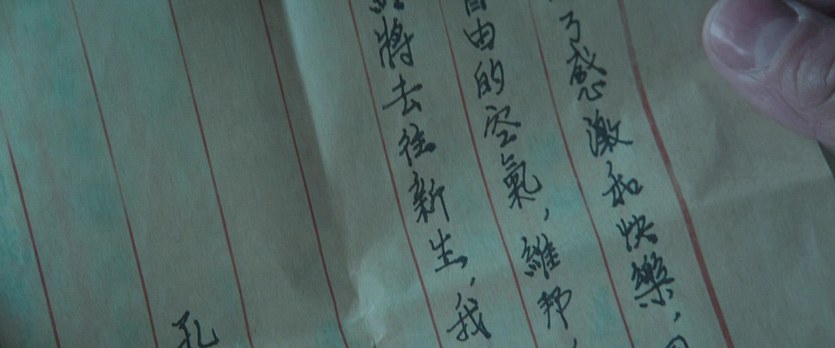 了感激和快樂，因
自由的空氣，維邦，
將去往新生，我
孔